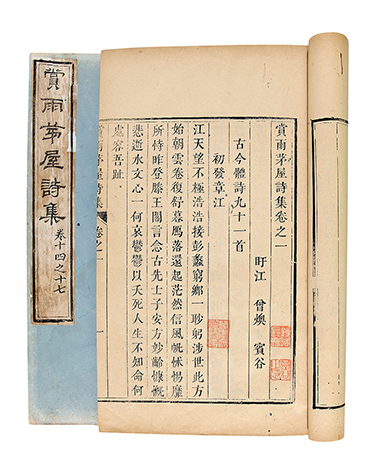 賞雨茅屋詩集卷之一
盱江 曾燠 賓谷
古今體詩九十一首
初發章江
江天望不極浩浩接彭蠡窮鄉一眇躬涉世此方
始朝雲卷復舒暮鳥落還起茫然信風帆怵惕靡
所恃昨登滕王閣言念古先士子安方妙齡慷慨
悲逝水文心一何哀鬱鬱以夭死人生不知命何
處容吾趾
賞雨茅屋詩集 卷之一 一
賞雨茅屋詩集 卷十四之十七